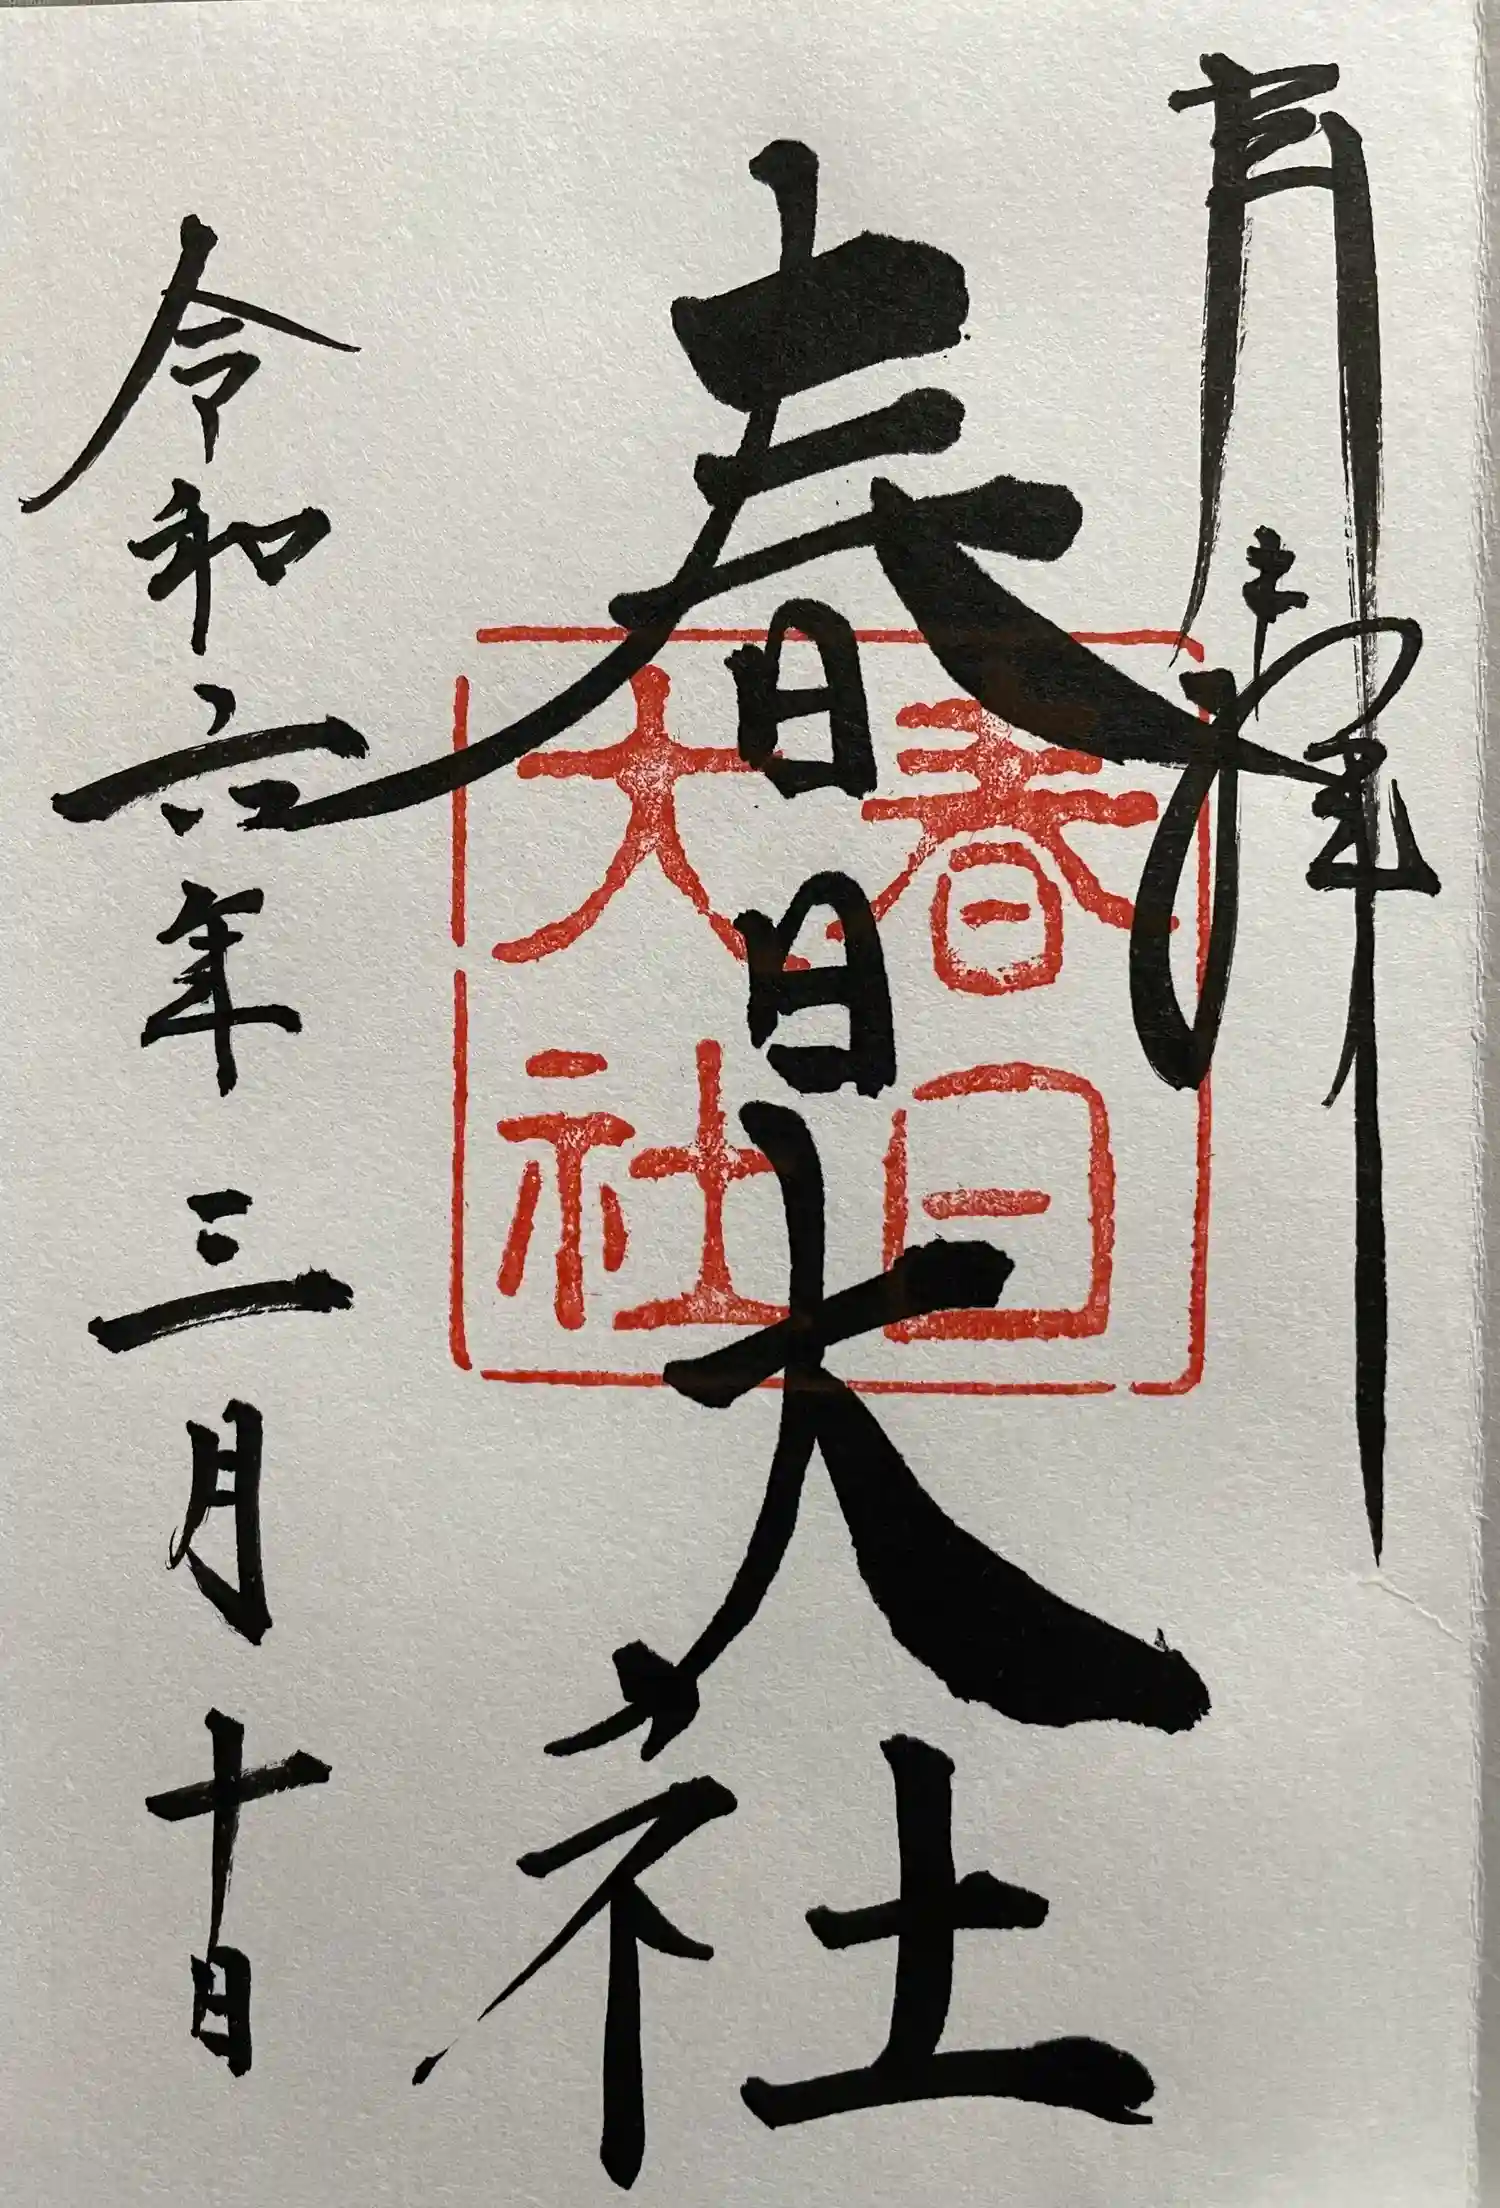 奉拝
春日大社
春日
大社
令和六年三月十日